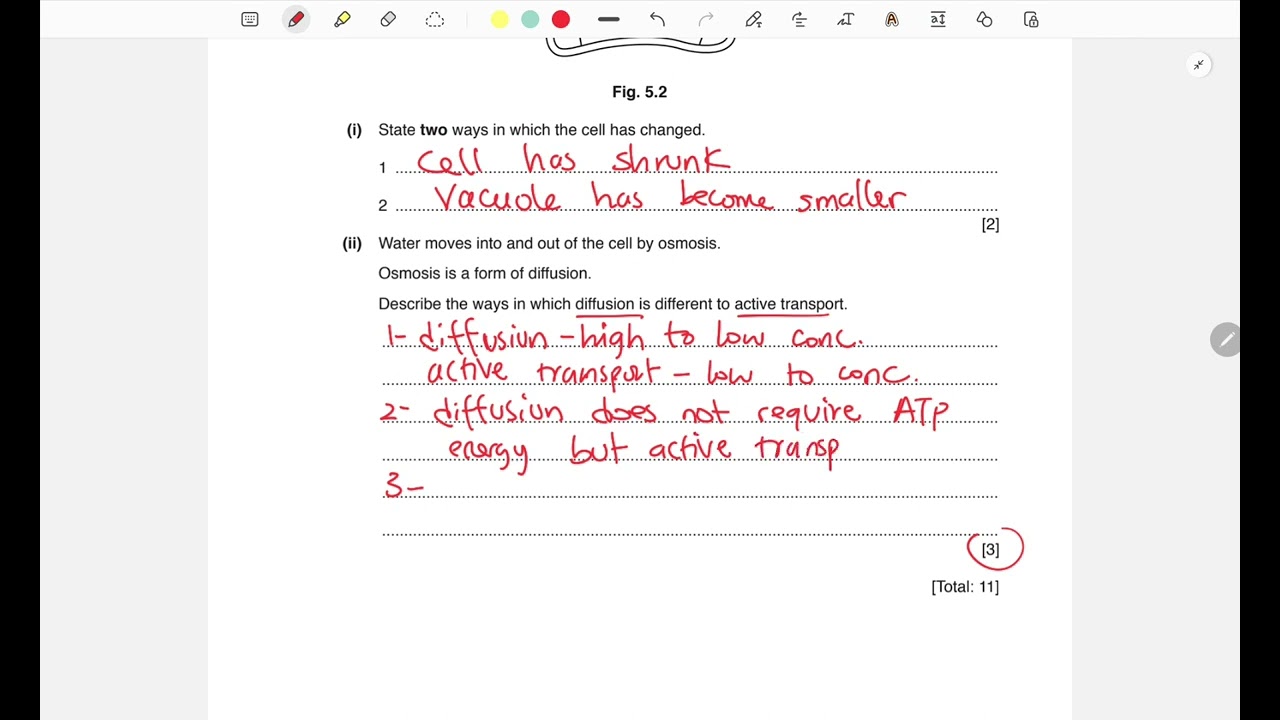 Fig. 5.2
(i) State two ways in which the cell has changed.
1 Cell has shrunk
2 Vacuole has become smaller
[2]
(ii) Water moves into and out of the cell by osmosis.
Osmosis is a form of diffusion.
Describe the ways in which diffusion is different to active transport.
1- diffusiun - high to low conc.
active transport - low to conc.
2- diffusiun does not require ATP
energy but active transp
3-
[3]
[Total: 11]